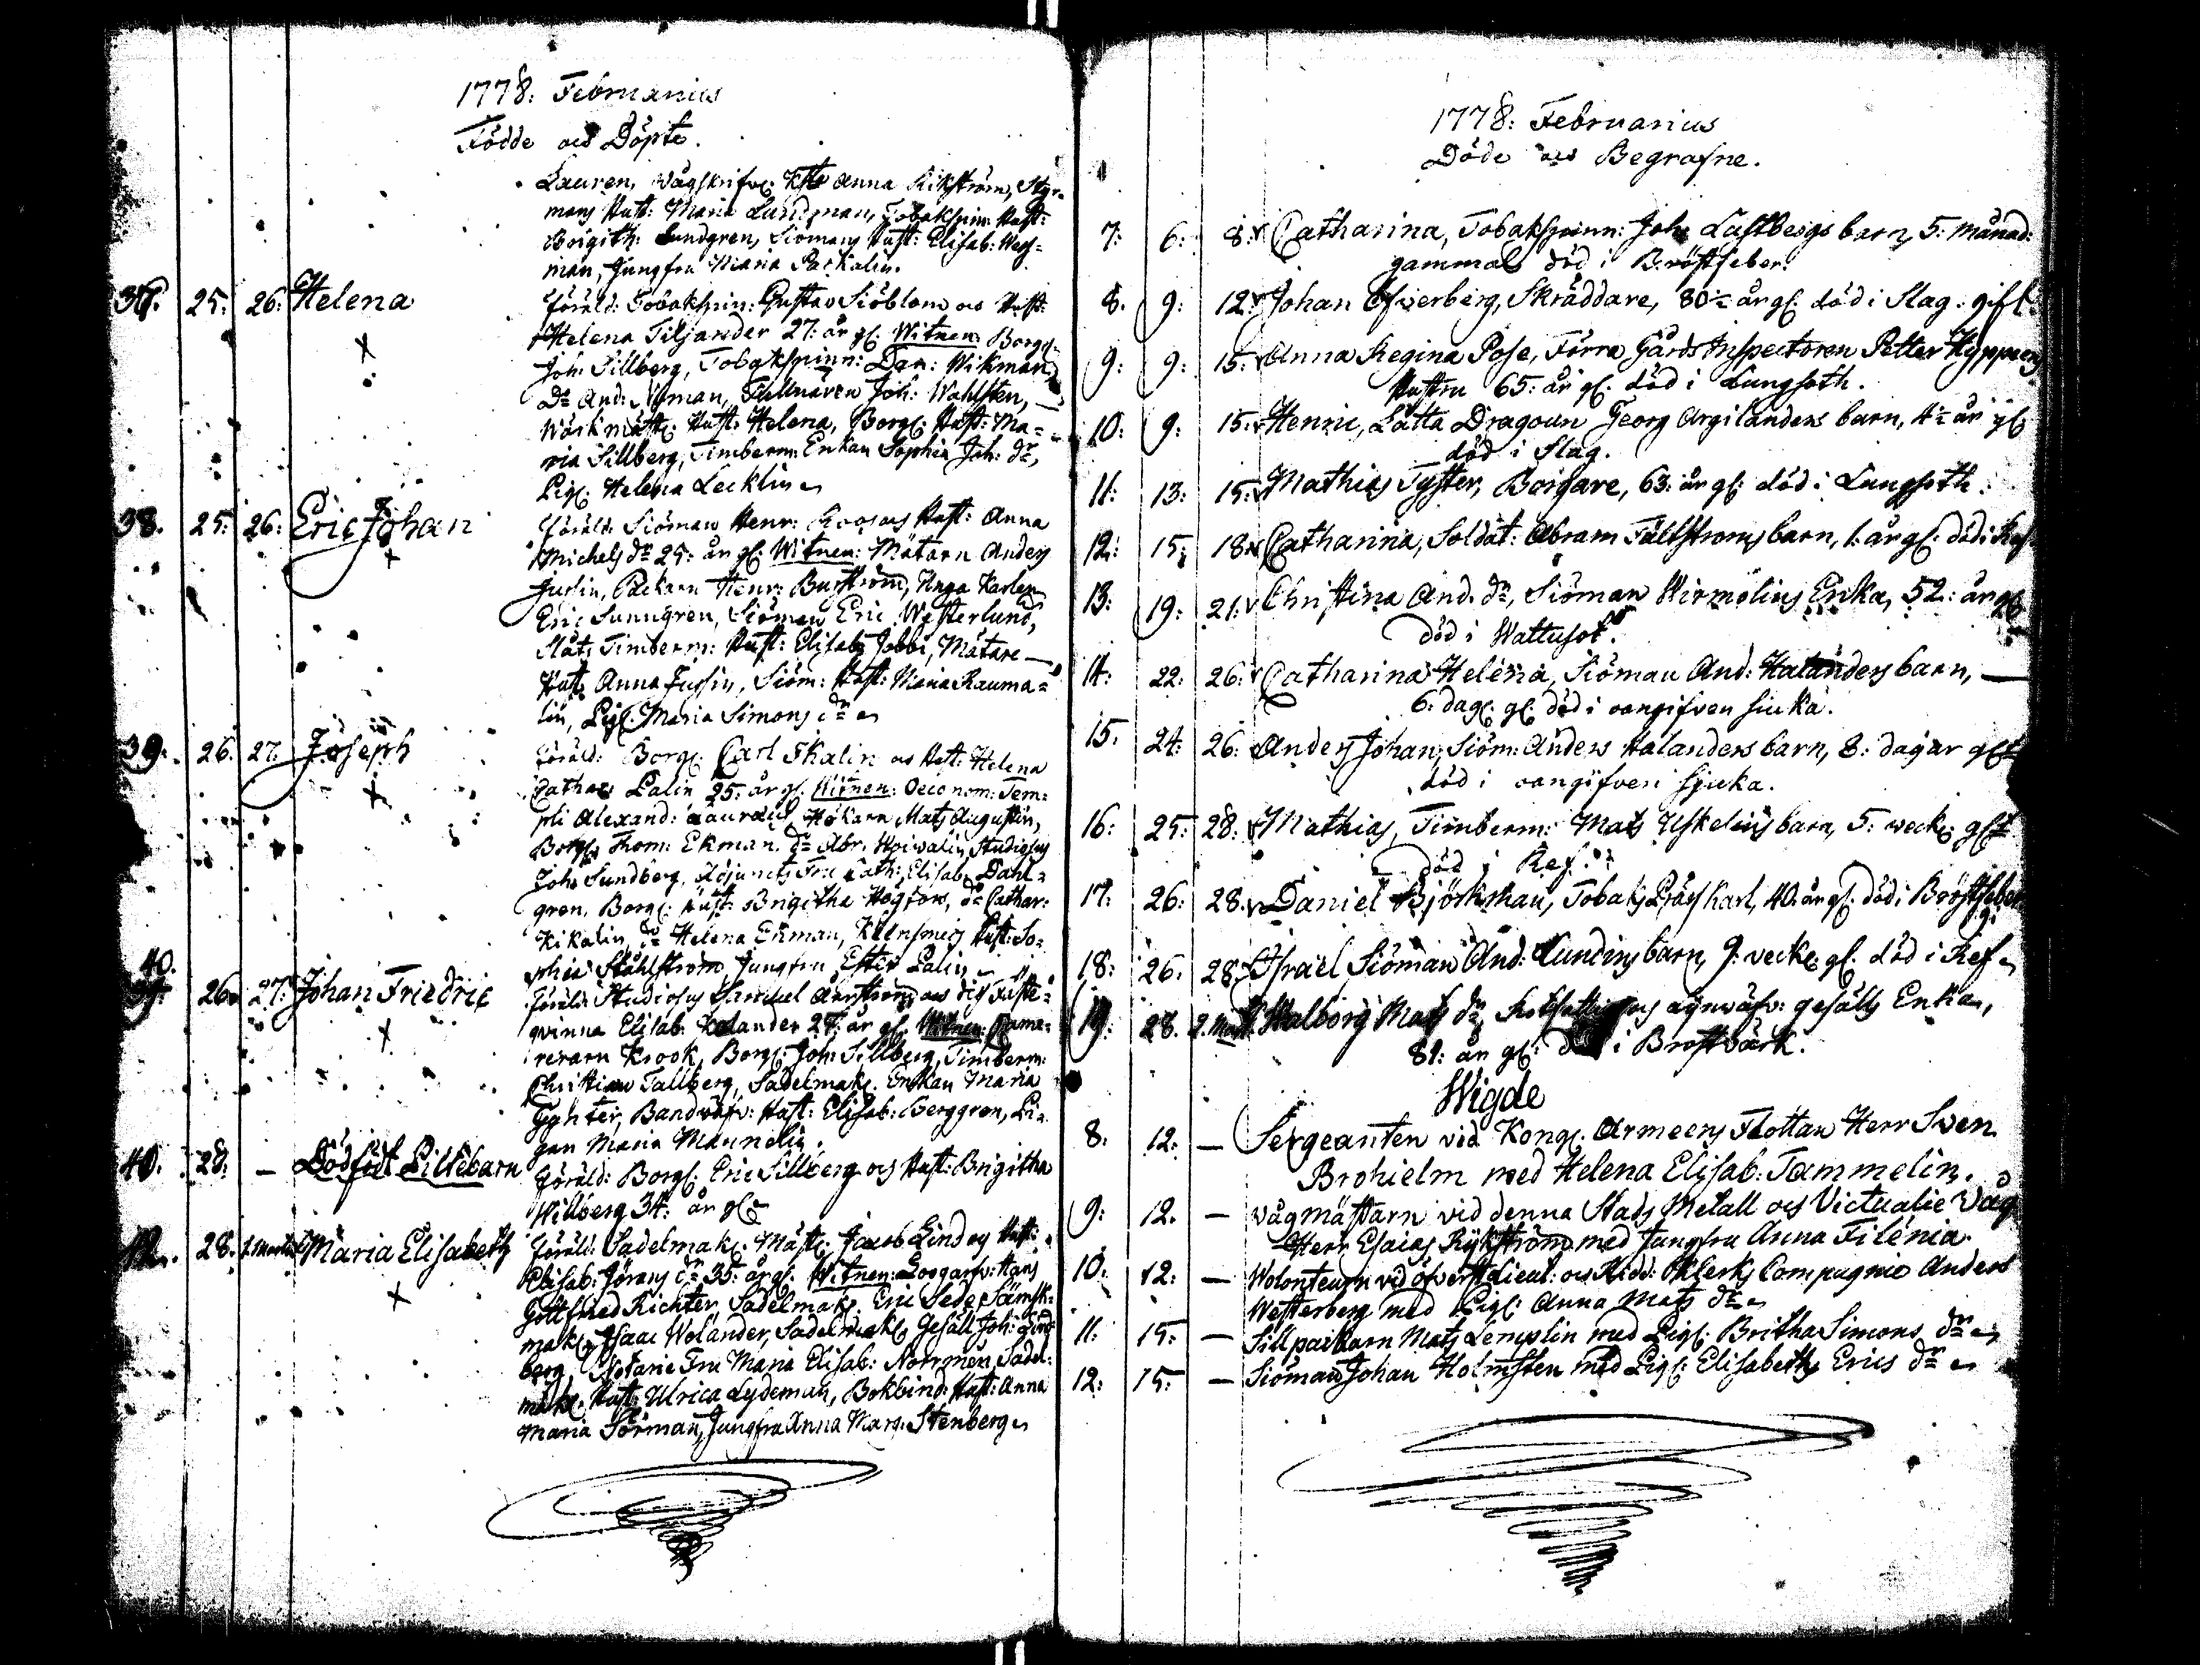 1778: Februarius
Födde och Döpte.
Lauren, Wågskrifv: Anna Rikström, Styr-
mans Hust: Maria Lundman, Tobakspin: Hust:
Brigith: Lundgren, Siömans Hust: Elisab: Weg=
man, Jungfru Maria Packalin.
37. 25: 26: Helena Föräld: Tobakspin: Gustav Siöblom och Hust:
Helena Tiljander 27: år gl: Witnen: Borg:
Joh: Sillberg, Tobakspinn: Dan: Wikman,
Do And: Nyman, Joh: Wahlsten,
Hust: Helena, Borg: Hust: Ma=
ria Sillberg, Timberm: Enkan Sophia Joh: dr,
Pig: Helena Lecklin
38. 25: 26: Eric Johan Föräld: Siöman Henr: Roos och Hust: Anna
Michels dr 25: år gl: Witnen: Mätarn Anders
Juslin, Packarn Henr: Burström, Unga Karlen
Eric Sunngren, Siöman Eric Westerlund,
Stats Timberm: Hust: Elisab: Jobbi, Mätare
Hust: Anna Juslin, Siöm: Hust: Maria Rauma=
lin, Pig: Maria Simons dr
39. 26. 27. Joseph Föräld: Borg: Carl Thalin och Hust: Helena
Cathar: Palin 25: år gl: Witnen: Oeconom: Tem=
pli Alexand: Lauræus, Hökarn Mats Augustin,
Borg: Thom: Ekman, do Abr: Hoivalin, Studiosus
Joh: Sundberg, Adjuncts Fru Cath: Elisab: Dahl=
gren, Borg: Hust: Brigitha Högfors, do Cathar:
Kikalin, do Helena Ekman, Hust: So=
phia Ståhlström, Jungfru Ester Palin
40. 26. 27: Johan Friedric Föräld: Studiosus Samuel och dess Fäste=
qvinna Elisab: Kalander 27: år gl: Witnen: Cama=
rerarn Krook, Borg: Joh: Sillberg, Timberm:
Christian Tallberg, Sadelmak: Enkan Maria
Bandväfv: Hust: Elisab: Berggren, Pi=
gan Maria Mannelin.
40. 28. — Dödfödt Pillebarn Föräld: Borg: Eric Sillberg och Hust: Brigitha
Willberg 34: år gl:
28. 1. Martii Maria Elisabeth Föräld: Sadelmak: Mäst: Jacob Lind och Hust:
Elisab: Jörans dr 35: år gl: Witnen: Hans
Gottfried Richter, Sadelmak: Eric Sämsk=
mak: Isaac Wolander, Sadelmak: Gesäll Joh: Lind=
berg, Notarie Fru Maria Elisab: Norrmén, Sadel=
mak: Hust: Ulrica Lydeman, Bokbind: Hust: Anna
Maria Sörman, Jungfru Anna Marg: Stenberg
1778: Februarius
Döde och Begrafne.
7: 6: 8: Catharina, Tobakspinn: Joh: Lustbergs barn, 5: månad:
gammal död i Bröstfeber.
8. 9: 12: Johan Öfverberg, Skräddare, 80½ år gl: död i Slag: gift:
9: 9: 15: Anna Regina Pose, Förra Gårds Inspectoren Petter Hyppeens
Hustru 65: år gl: död i Lungsoth.
10: 9: 15: Henric, Lätta Dragoun Georg Argilanders barn, 4½ år gl:
död i Slag.
11: 13: 15: Mathias Tyster, Borgare, 63: år gl: död i Lungsoth.
12: 15: 18: Catharina, Soldat: Abram Fältströms barn, 1: år gl: död i
13: 19: 21: Christina And: dr, Siöman Hirmelins Enka, 52: år gl:
död i Wattusot.
14: 22: 26: Catharina Helena, Siöman And: Halanders barn, —
6: dag: gl: död i oangifven siuka.
15. 24: 26: Anders Johan, Siöm: Anders Halanders barn, 8: dagar gl:
död i oangifven sjuka.
16: 25: 28: Mathias, Timberm: Mats Uskelins barn, 5: veck: gl:
död i Ref.
17: 26: 28: Daniel Björkman, Tobaks Präss Karl, 40: år gl: död i Bröstfeber
18: 26: 28: Israel Siöman And: Lundins barn, 9: veck: gl: död i Ref
19: 28. 2. Mart. Walborg Mats dr, gesälls Enka,
81: år gl: död i Bröstvärk.
Wigde
8: 12: — Sergeanten vid Kongl: Armeens Flottan Herr Sven
Brohielm med Helena Elisab: Tammelin.
9: 12. — Vågmästarn vid denna Stads Metall och Victualie Våg
Herr Esaias Rykström med Jungfru Anna Filénia.
10: 12: — Wolonteurn vid Öfverst Lieut: och Ridd: Öklerks Compagnie Anders
Westerberg med Pig: Anna Mats dr
11: 15: — Sillpackarn Mats Lemplin med Pig: Britha Simons dr
12: 15: — Siöman Johan Holmsten med Pig: Elisabeth Erics dr